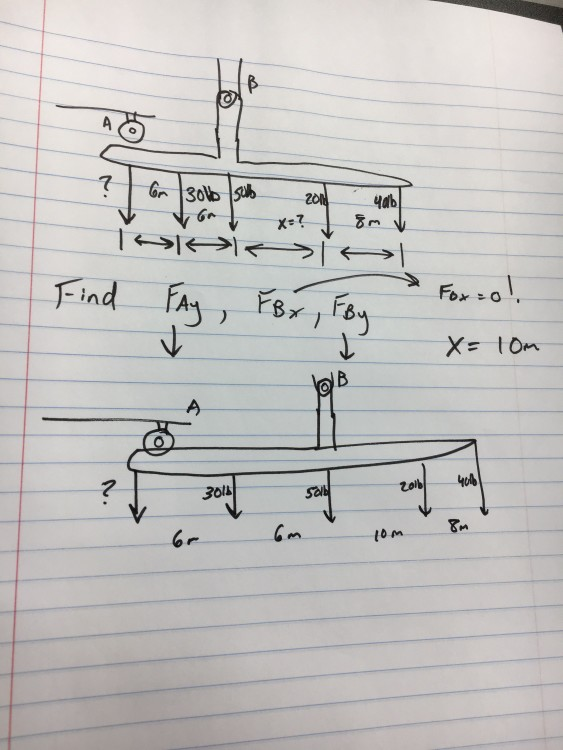 B
A
? 6m 30lb 50lb 20lb 40lb
6m x=? 8m
Find FAy, FBx, FBy FBx=0!
X= 10m
B
A
? 30lb 50lb 20lb 40lb
6m 6m 10m 8m